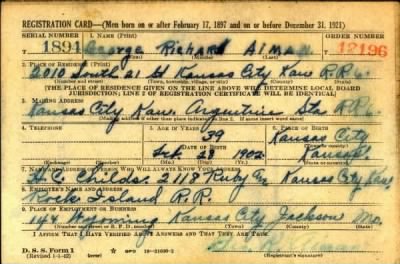 REGISTRATION CARD—(Men born on or after February 17, 1897 and on or before December 31, 1921)
SERIAL NUMBER 1. NAME (Print) ORDER NUMBER
1894 George Richard Alman 12196
(First) (Middle) (Last)
2. PLACE OF RESIDENCE (Print)
2010 South 21 St Kansas City Kans R.R.4.
(Number and street) (Town, township, village, or city) (County) (State)
(THE PLACE OF RESIDENCE GIVEN ON THE LINE ABOVE WILL DETERMINE LOCAL BOARD
JURISDICTION; LINE 2 OF REGISTRATION CERTIFICATE WILL BE IDENTICAL)
3. MAILING ADDRESS
Kansas City Kans Argentine Sta R.R.4.
(Mailing address if other than place indicated on line 2. If same insert word same)
4. TELEPHONE 5. AGE IN YEARS 6. PLACE OF BIRTH
39 Kansas City
DATE OF BIRTH (Town or county)
Feb. 28 1902 Kansas.
(Exchange) (Number) (Mo.) (Day) (Yr.) (State or country)
7. NAME AND ADDRESS OF PERSON WHO WILL ALWAYS KNOW YOUR ADDRESS
H. C. Childs. 2118 Ruby Kansas City Kans.
8. EMPLOYER'S NAME AND ADDRESS
Rock Island R.R.
9. PLACE OF EMPLOYMENT OR BUSINESS
Wyoming Kansas City Jackson Mo.
(Number and street or R. F. D. number) (Town) (County) (State)
I AFFIRM THAT I HAVE VERIFIED ABOVE ANSWERS AND THAT THEY ARE TRUE.
D. S. S. Form 1
(Revised 1-1-42) (over) (Registrant's signature)